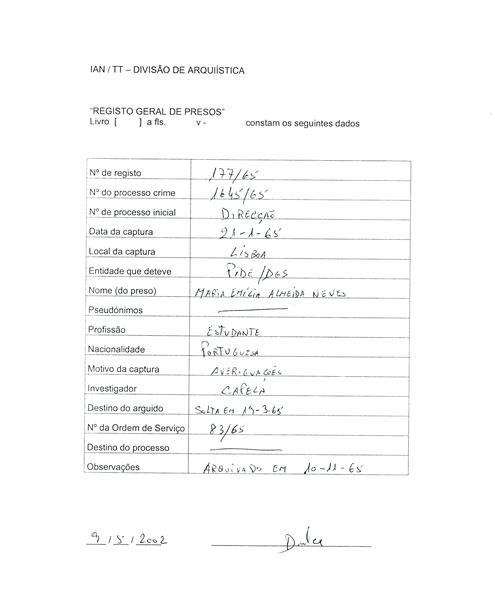 IAN / TT – DIVISÃO DE ARQUIÍSTICA
"REGISTO GERAL DE PRESOS"
Livro [ ] a fls. v - constam os seguintes dados
Nº de registo 177/65
Nº do processo crime 1645/65
Nº de processo inicial DIRECÇÃO
Data da captura 21-1-65
Local da captura LISBOA
Entidade que deteve PIDE/DGS
Nome (do preso) MARIA EMÍLIA ALMEIDA NEVES
Pseudónimos
Profissão ESTUDANTE
Nacionalidade PORTUGUESA
Motivo da captura AVERIGUAÇÕES
Investigador CAPELA
Destino do arguido SOLTA EM 19-3-65
Nº da Ordem de Serviço 83/65
Destino do processo
Observações ARQUIVADO EM 10-11-65
9 / 5 / 2002 Dulce